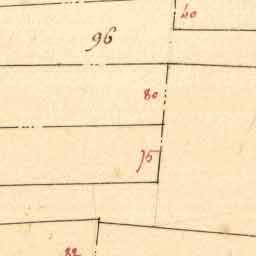 40
96
80
75
82